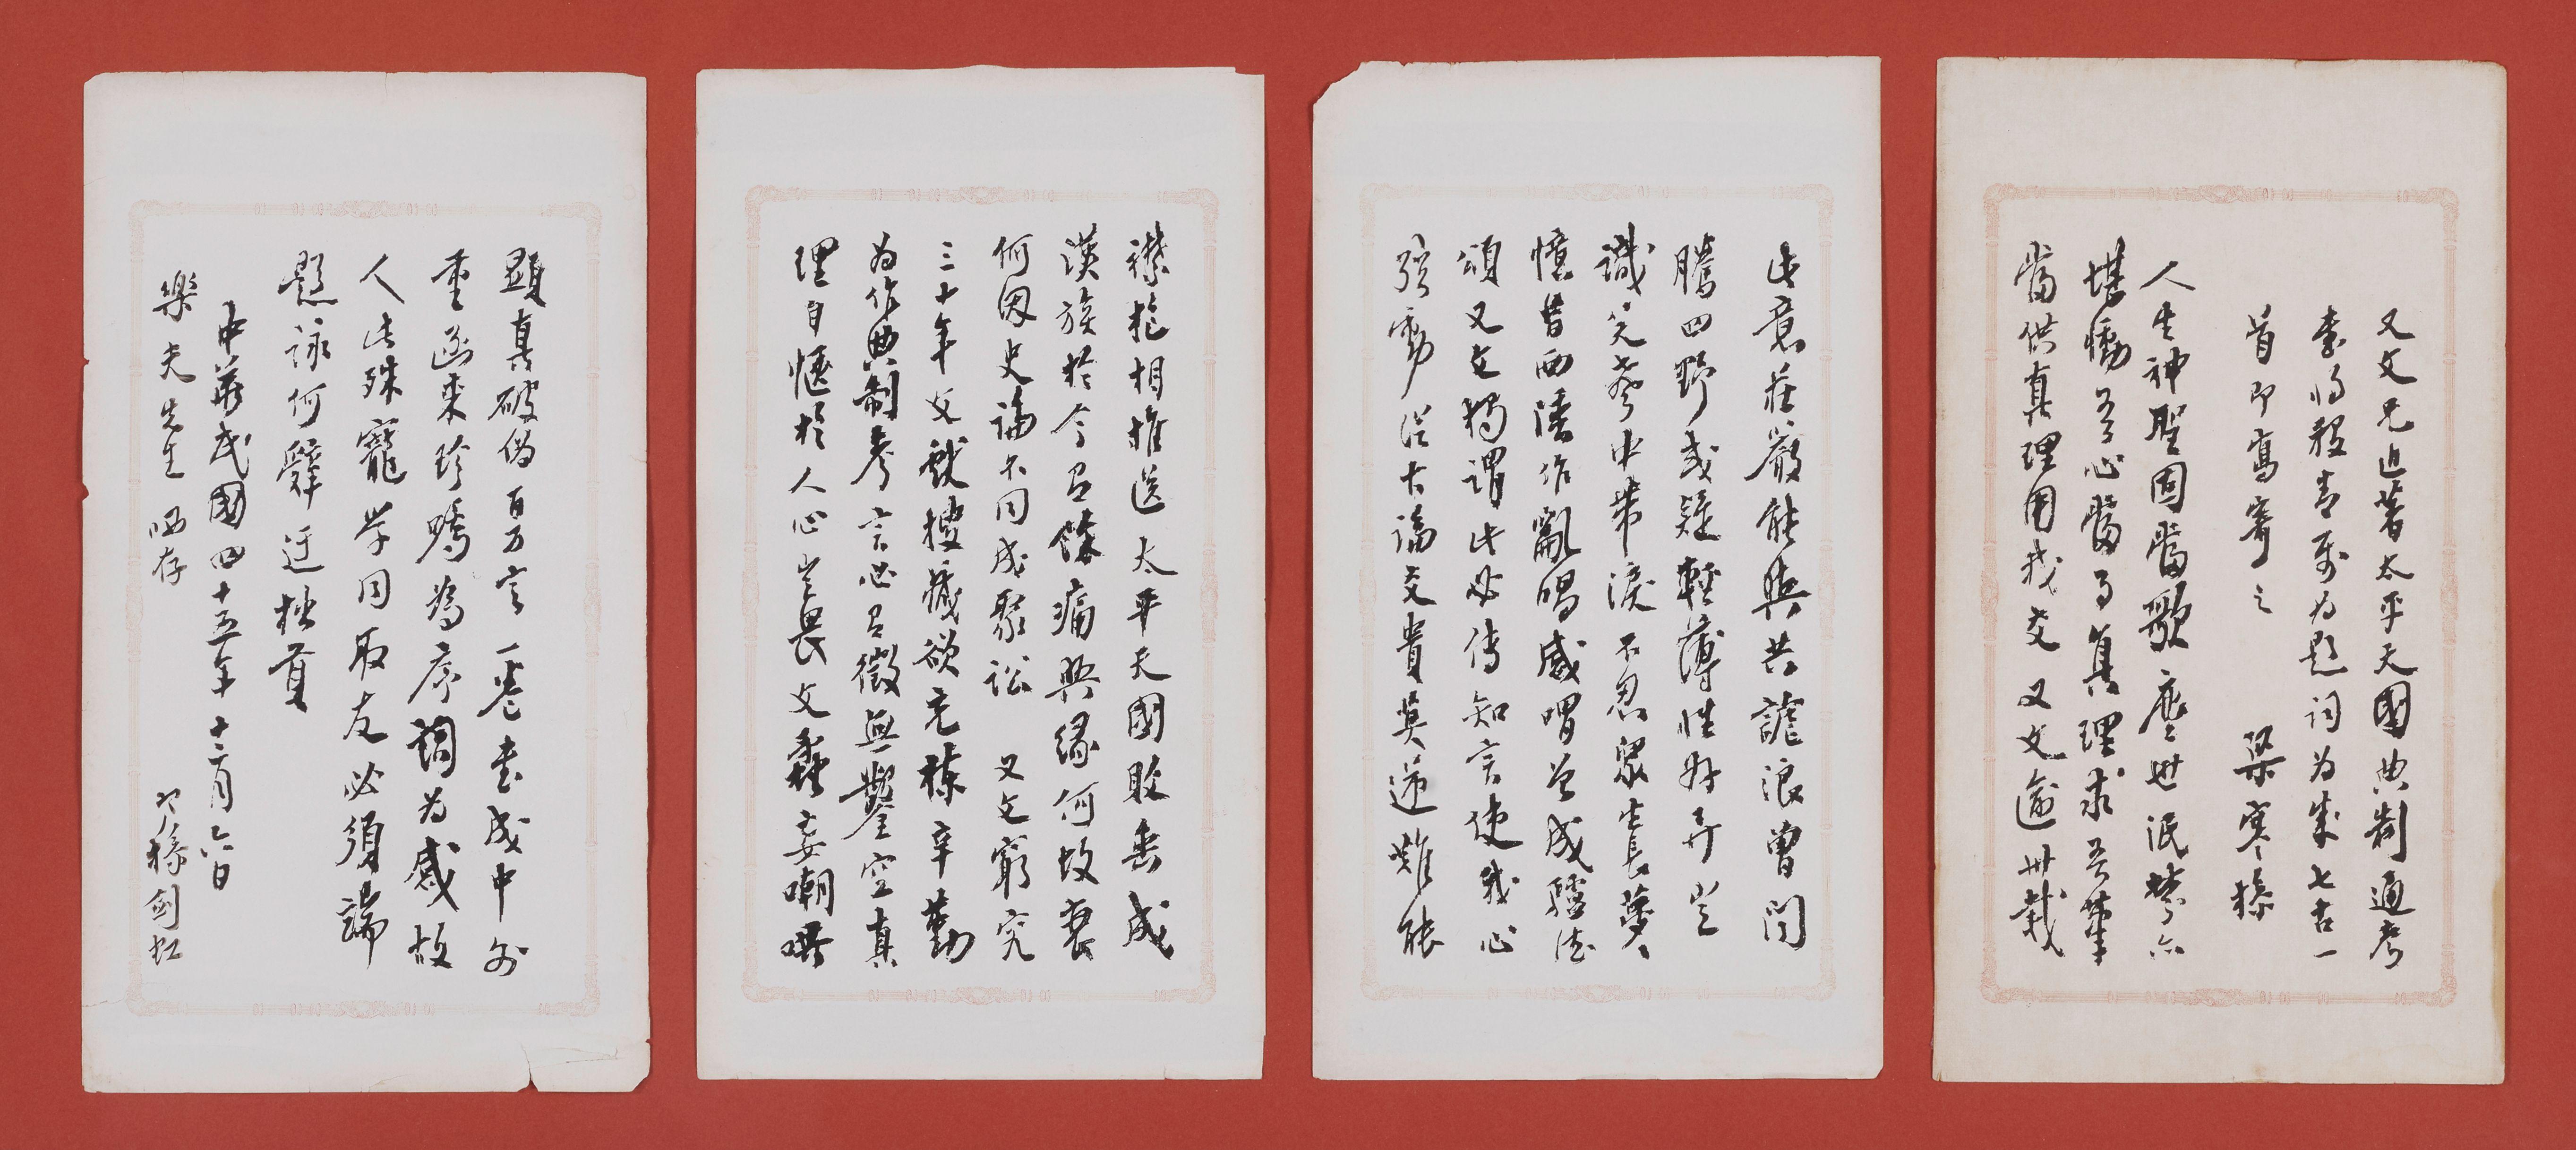 又文兄近著太平天國典制通考
書將殺青爰為題詞為集七古一
首即寫寄之　梁寒操
人生神聖固當歌塵世泯棼亦
堪慟吾心當為真理求吾筆
當供真理用我交又文逾卅載
此意莊嚴能與共謔浪曾聞
騰四野或疑輕薄性好弄豈
識笑聲中帶淚不忍眾生長夢夢
憶昔西陲作亂鳴咸謂曾成騷法
頌又文獨謂此必傳知言使我心
弦動從古論交貴莫逆難能
襟抱相推送太平天國敗垂成
漢族於今有餘痛興緣何故衰
何因史論不同成聚訟　又文窮究
三十年文獻搜藏欲充棟辛勤
為作典制考言必有徵無鑿空真
理自愜於人心豈畏文蠡妄嘲哄
顯真破偽百萬言一卷書成中外
重函來珍囑為序謂為感故
人此殊寵學問取友必須端
題詠何辭迂拙貢
中華民國四十五年十二月六日
樂夫先生 哂存　寒操劍虹